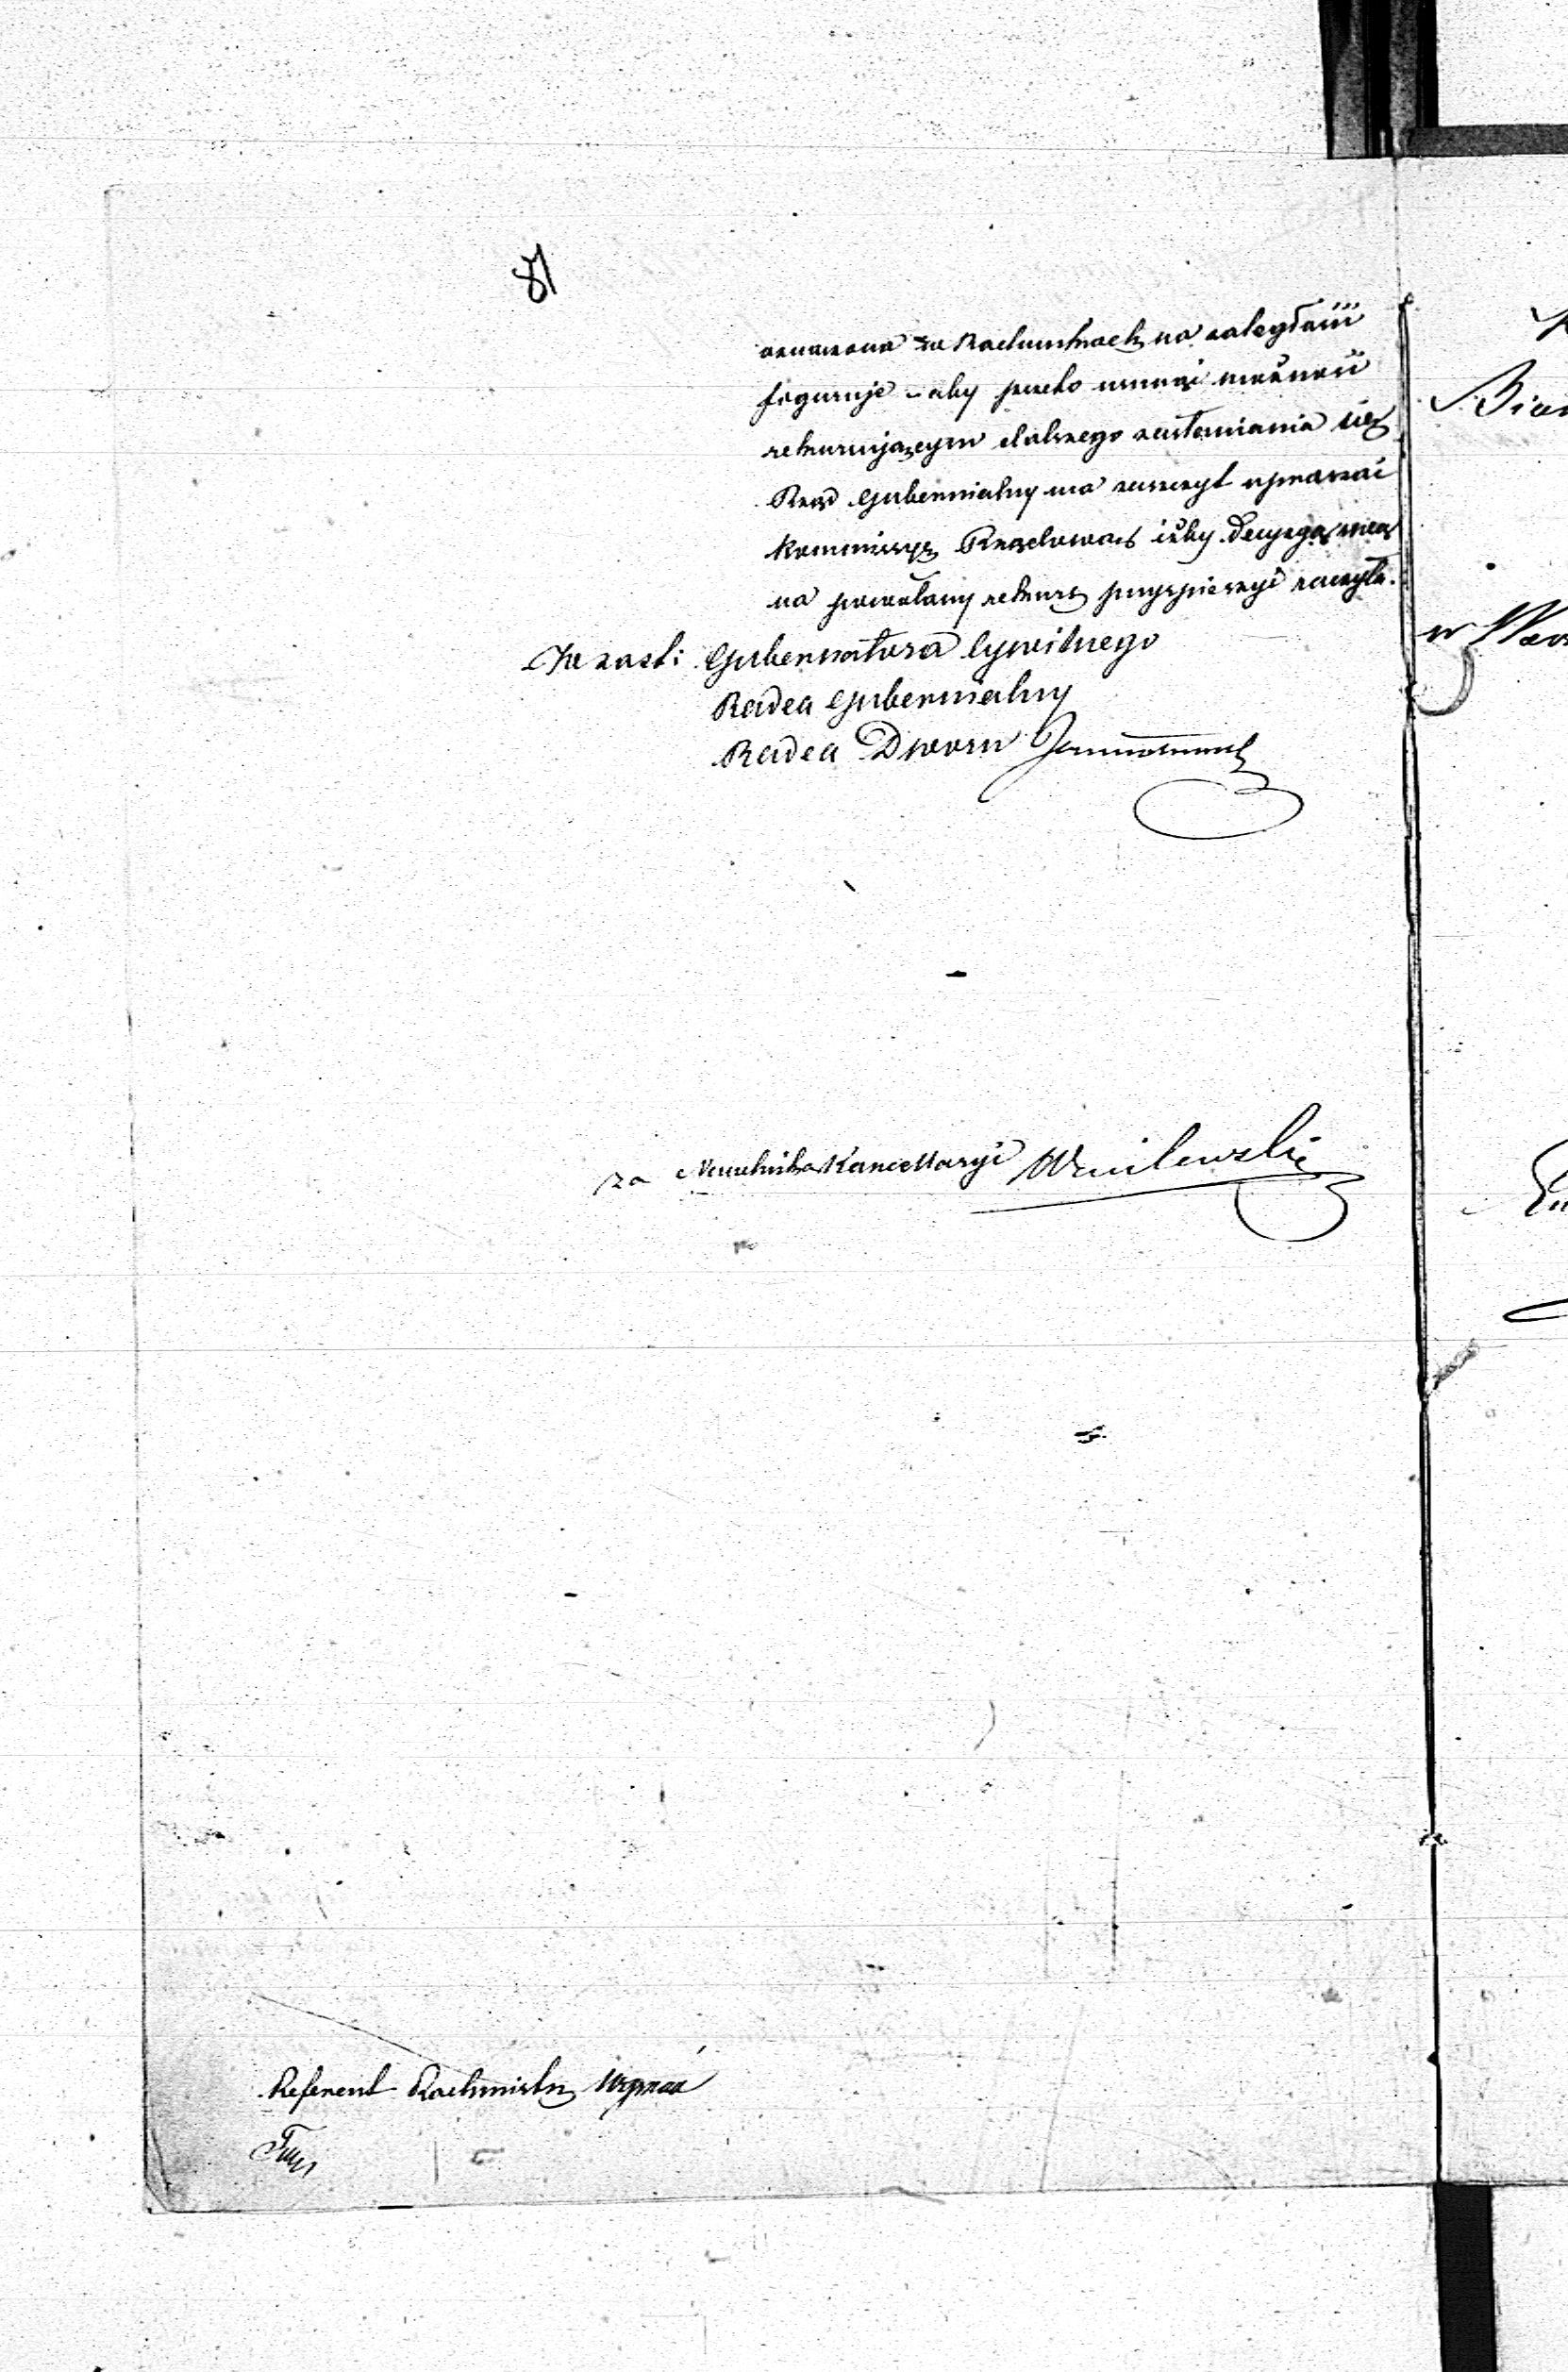 81
oznaczona w Rachunkach na zaległości
figuruje – aby przeto usunąć możność
rekurującym dalszego zasłaniania się
Rząd Gubernialny ma zaszczyt upraszać
Kommissyę Rządową iżby decyzyą swą
na powołany rekurs przyspieszyć raczyła.
W zast: Gubernatora Cywilnego
Radca Gubernialny
Radca Dworu
za Naczelnika Kancellaryi Wasilewski
Referent Rachmistrz